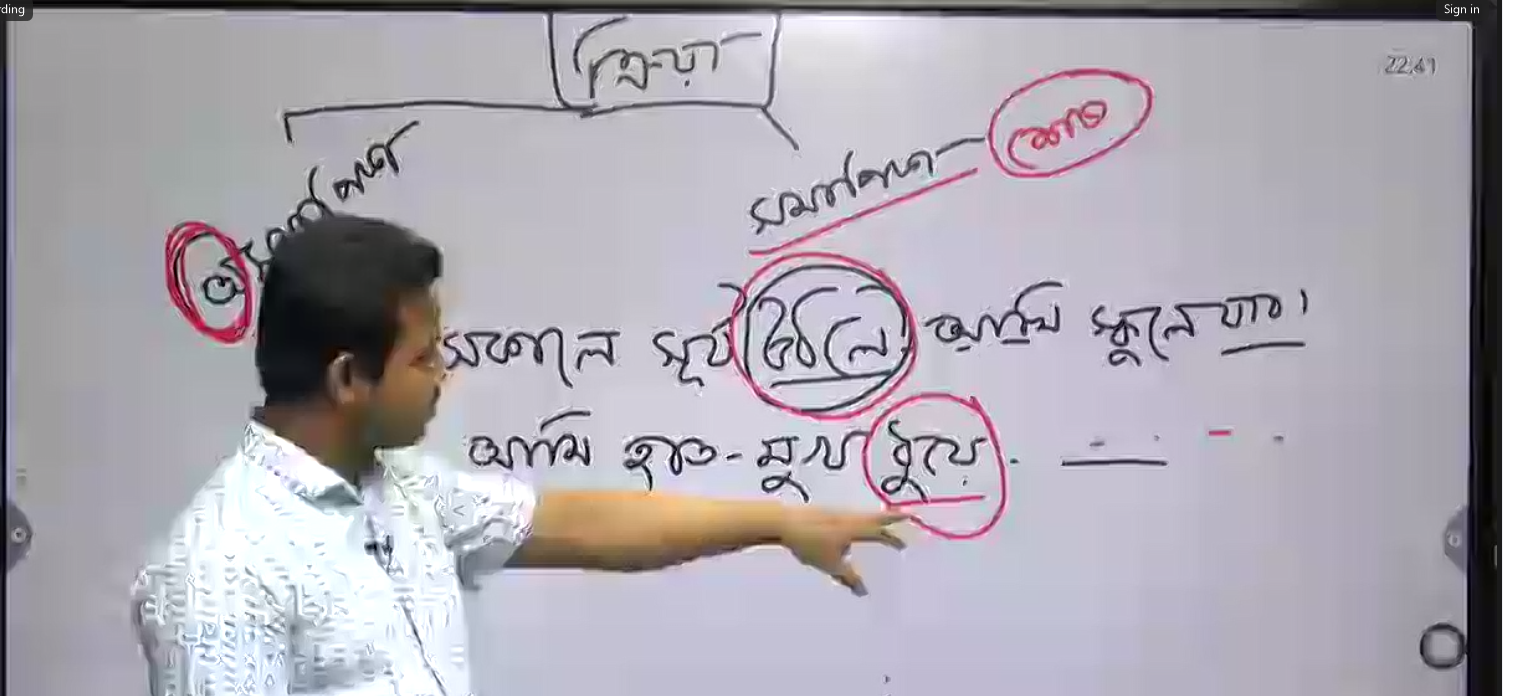 ding
Sign in
22:41
ক্রিয়া
সমাপিকা
শেষ
সকালে সূর্য উঠিলে আমি স্কুলে যাব।
আমি হাত-মুখ ধুয়ে